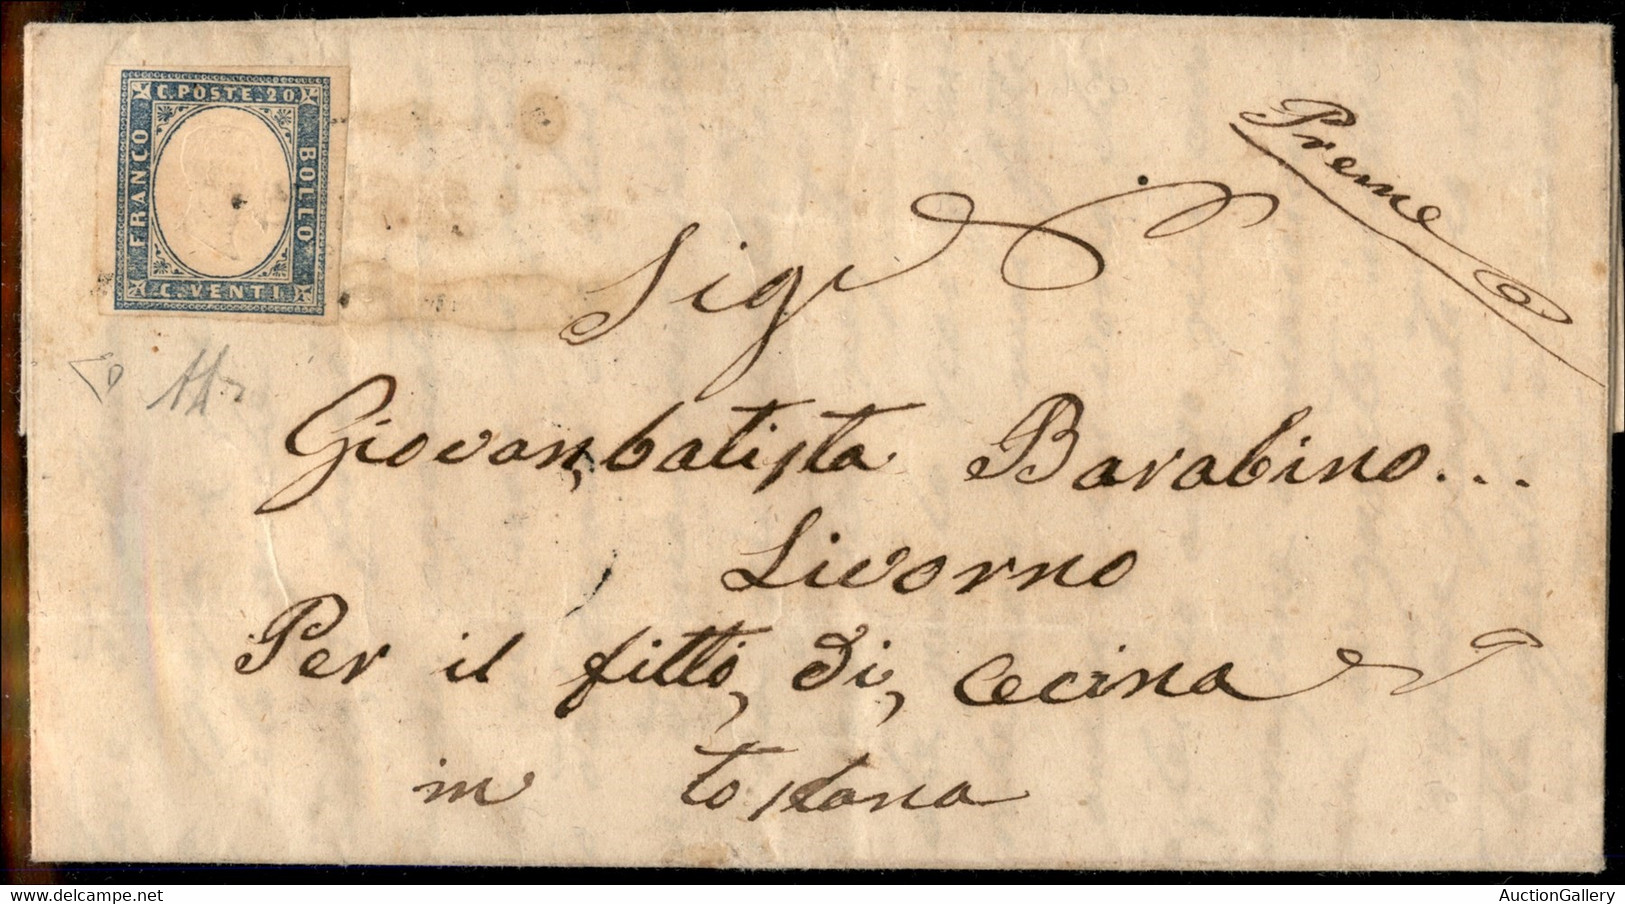 C. POSTE. 20.
FRANCO
BOLLO
C. VENTI
Preme
Sigr
Giovanbatista Barabino...
Livorno
Per il fitto, di, Cecina
in tostana
AuctionGallery